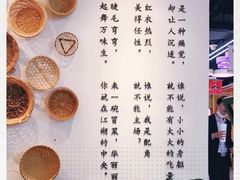 是一种痛觉，
却让人沉迷。
红衣热烈，
美得任性。
睫毛弯弯，
起舞万味生。
谁说，小小的身躯
就不能有大大的能量
谁说，我是配角
就不能立场？
来一碗冒菜，华丽丽
你就在江湖的中央